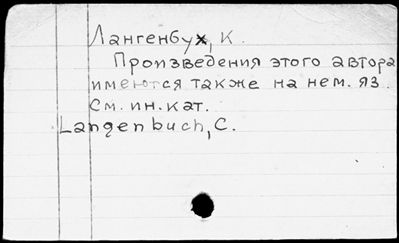 Лангенбух, К.
Произведения этого автора
имеются также на нем. яз.
См. ин. кат.
Langenbuch, C.